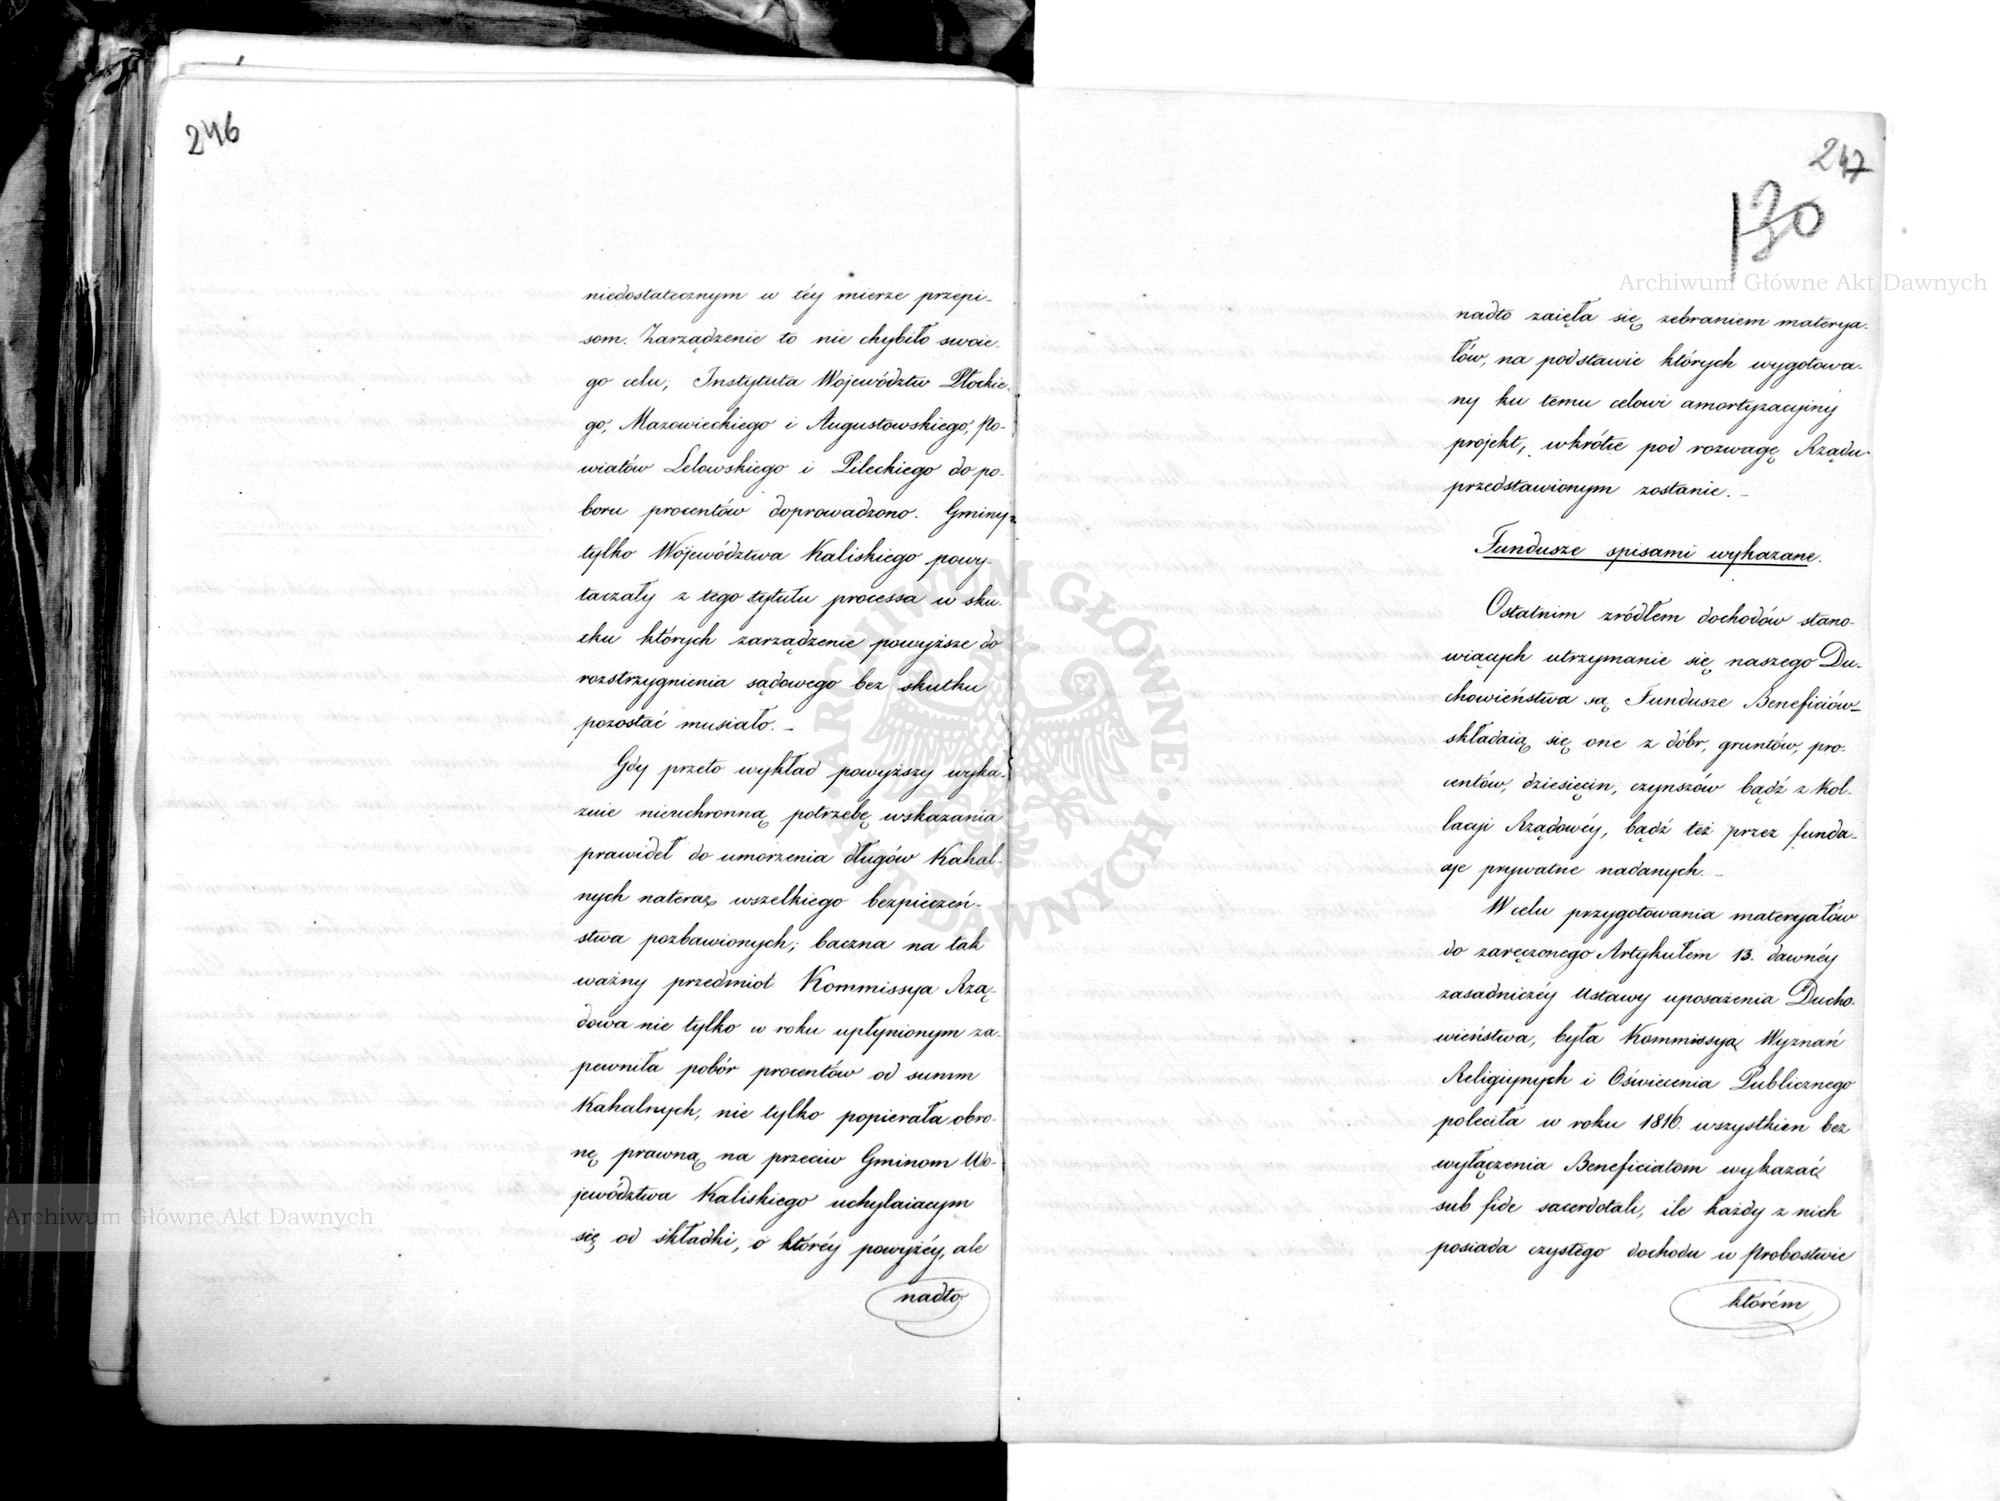 246
niedostatecznym w téy mierze przepi-
som. Zarządzenie to nie chybiło swoie-
go celu; Instytuta Województw Płockie-
go, Mazowieckiego i Augustowskiego, Po-
wiatów Lelowskiego i Pileckiego do po-
boru procentów doprowadzono. Gminy
tylko Województwa Kaliskiego powy-
taczały z tego tytułu processa w sku-
tku których zarządzenie powyższe do
rozstrzygnienia sądowego bez skutku
pozostać musiało. –
Gdy przeto wykład powyższy wyka-
zuie nieuchronną potrzebę wskazania
prawideł do umorzenia długów Kahal-
nych nateraz wszelkiego bezpieczeń-
stwa pozbawionych; baczna na tak
ważny przedmiot Kommissya Rzą-
dowa nie tylko w roku upłynionym za-
pewniła pobór procentów od summ
Kahalnych, nie tylko popierała obro-
nę prawną na przeciw Gminom Wo-
jewództwa Kaliskiego uchylaiacym
się od składki, o któréy powyżéy, ale
nadto
247
130
nadto zaięła się zebraniem materya-
łów, na podstawie których wygotowa-
ny ku temu celowi amortyzacyiny
projekt, wkrótce pod rozwagę Rządu
przedstawionym zostanie. –
Fundusze spisami wykazane.
Ostatnim zródłem dochodów stano-
wiących utrzymanie się naszego Du-
chowieństwa są Fundusze Beneficiów
składaią się one z dóbr, gruntów, pro-
centów, dziesięcin, czynszów bądź z Kol-
lacji Rządowéy, bądź też przez funda-
cye prywatne nadanych. –
W celu przygotowania materyałów
do zaręczonego Artykułem 13. dawnéy
zasadniczéy Ustawy uposażenia Ducho-
wieństwa, była Kommissya Wyznań
Religiynych i Oświecenia Publicznego
poleciła w roku 1816. wszystkien bez
wyłączenia Beneficiatom wykazać
sub fide sacerdotali, ile każdy z nich
posiada czystego dochodu w Probostwie
którém
Archiwum Główne Akt Dawnych
Archiwum Główne Akt Dawnych
ARCHIWUM GŁÓWNE AKT DAWNYCH